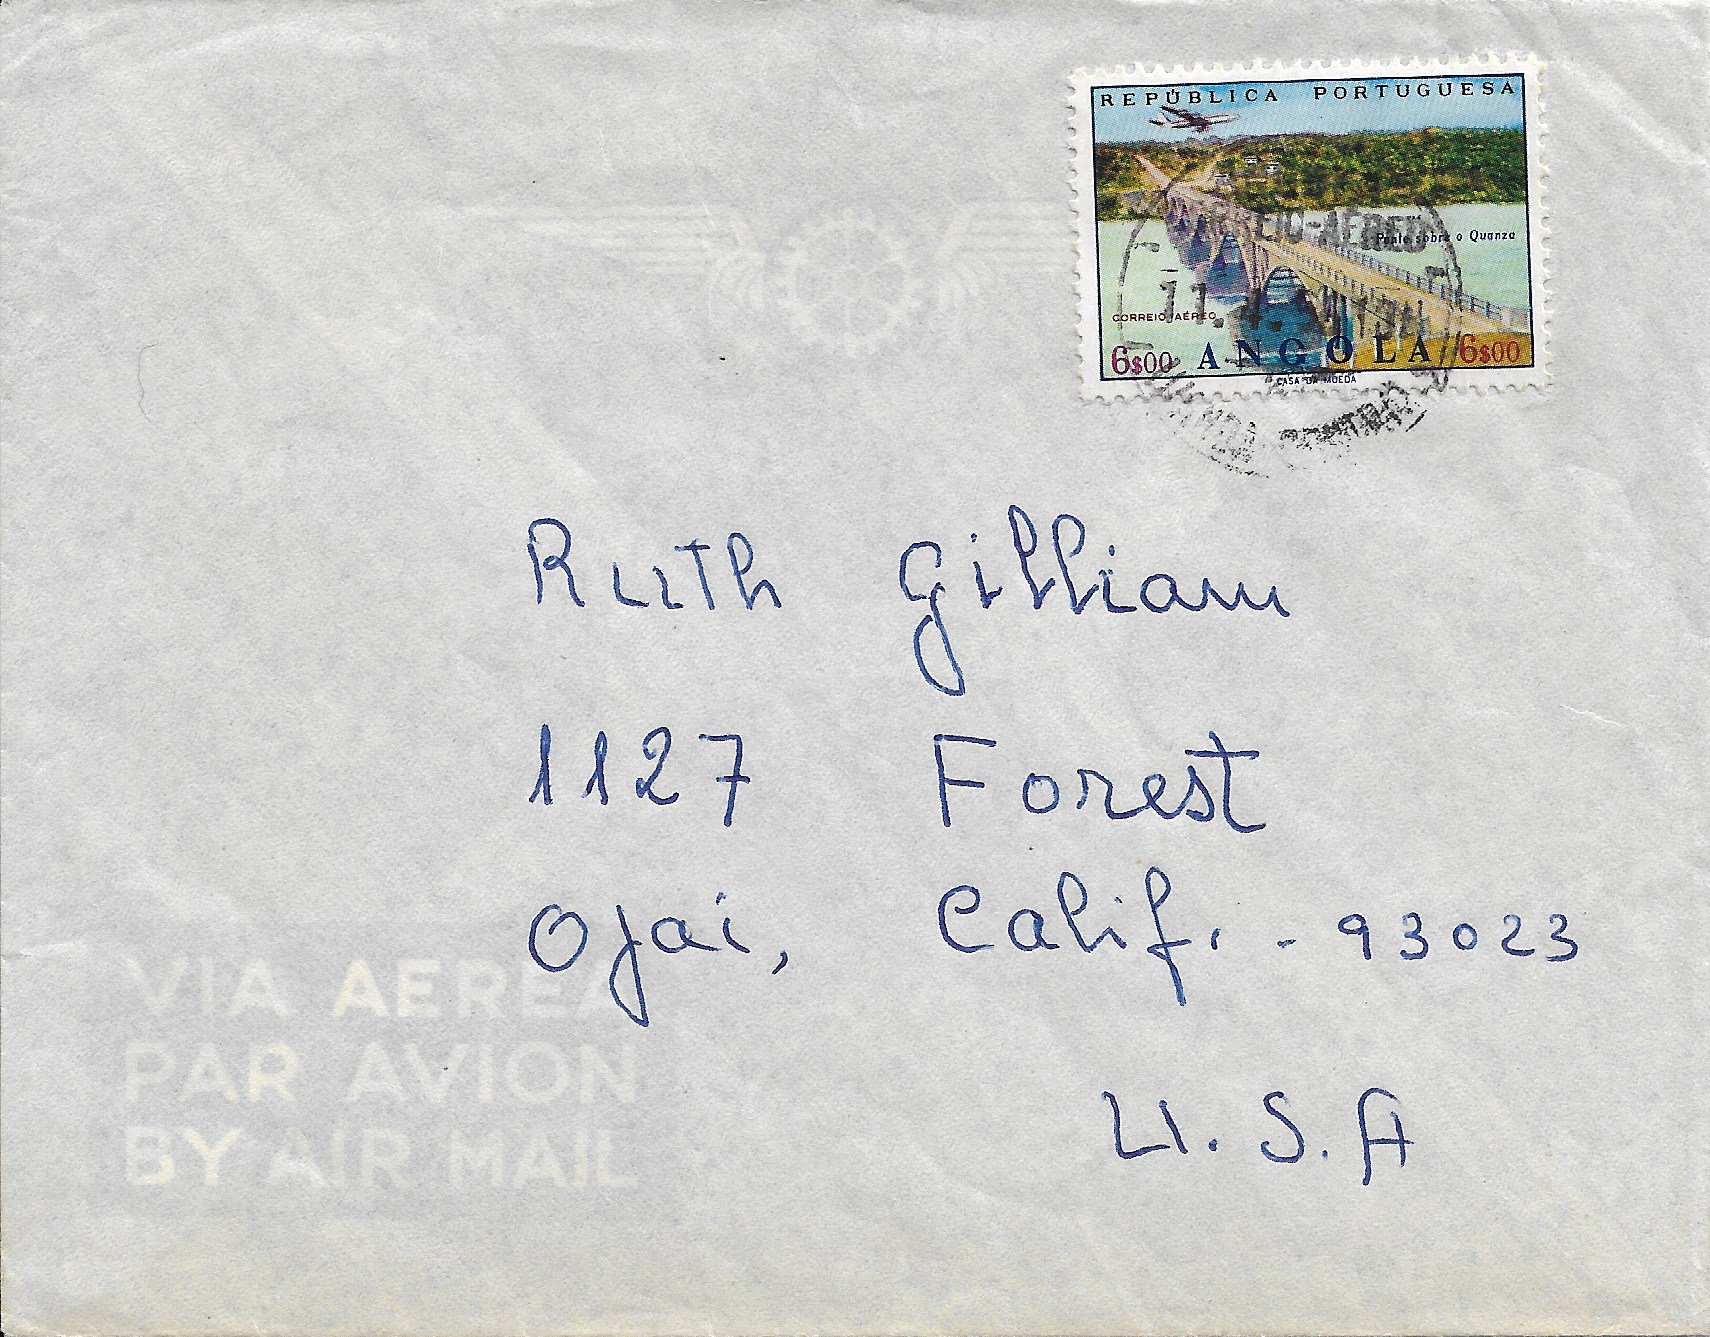 REPÚBLICA PORTUGUESA
Ponte sobre o Quanza
CORREIO AÉREO
6$00 ANGOLA 6$00
CASA DA MOEDA
Ruth Gilliam
1127 Forest
Ojai, Calif. - 93023
U.S.A
VIA AEREA
PAR AVION
BY AIR MAIL